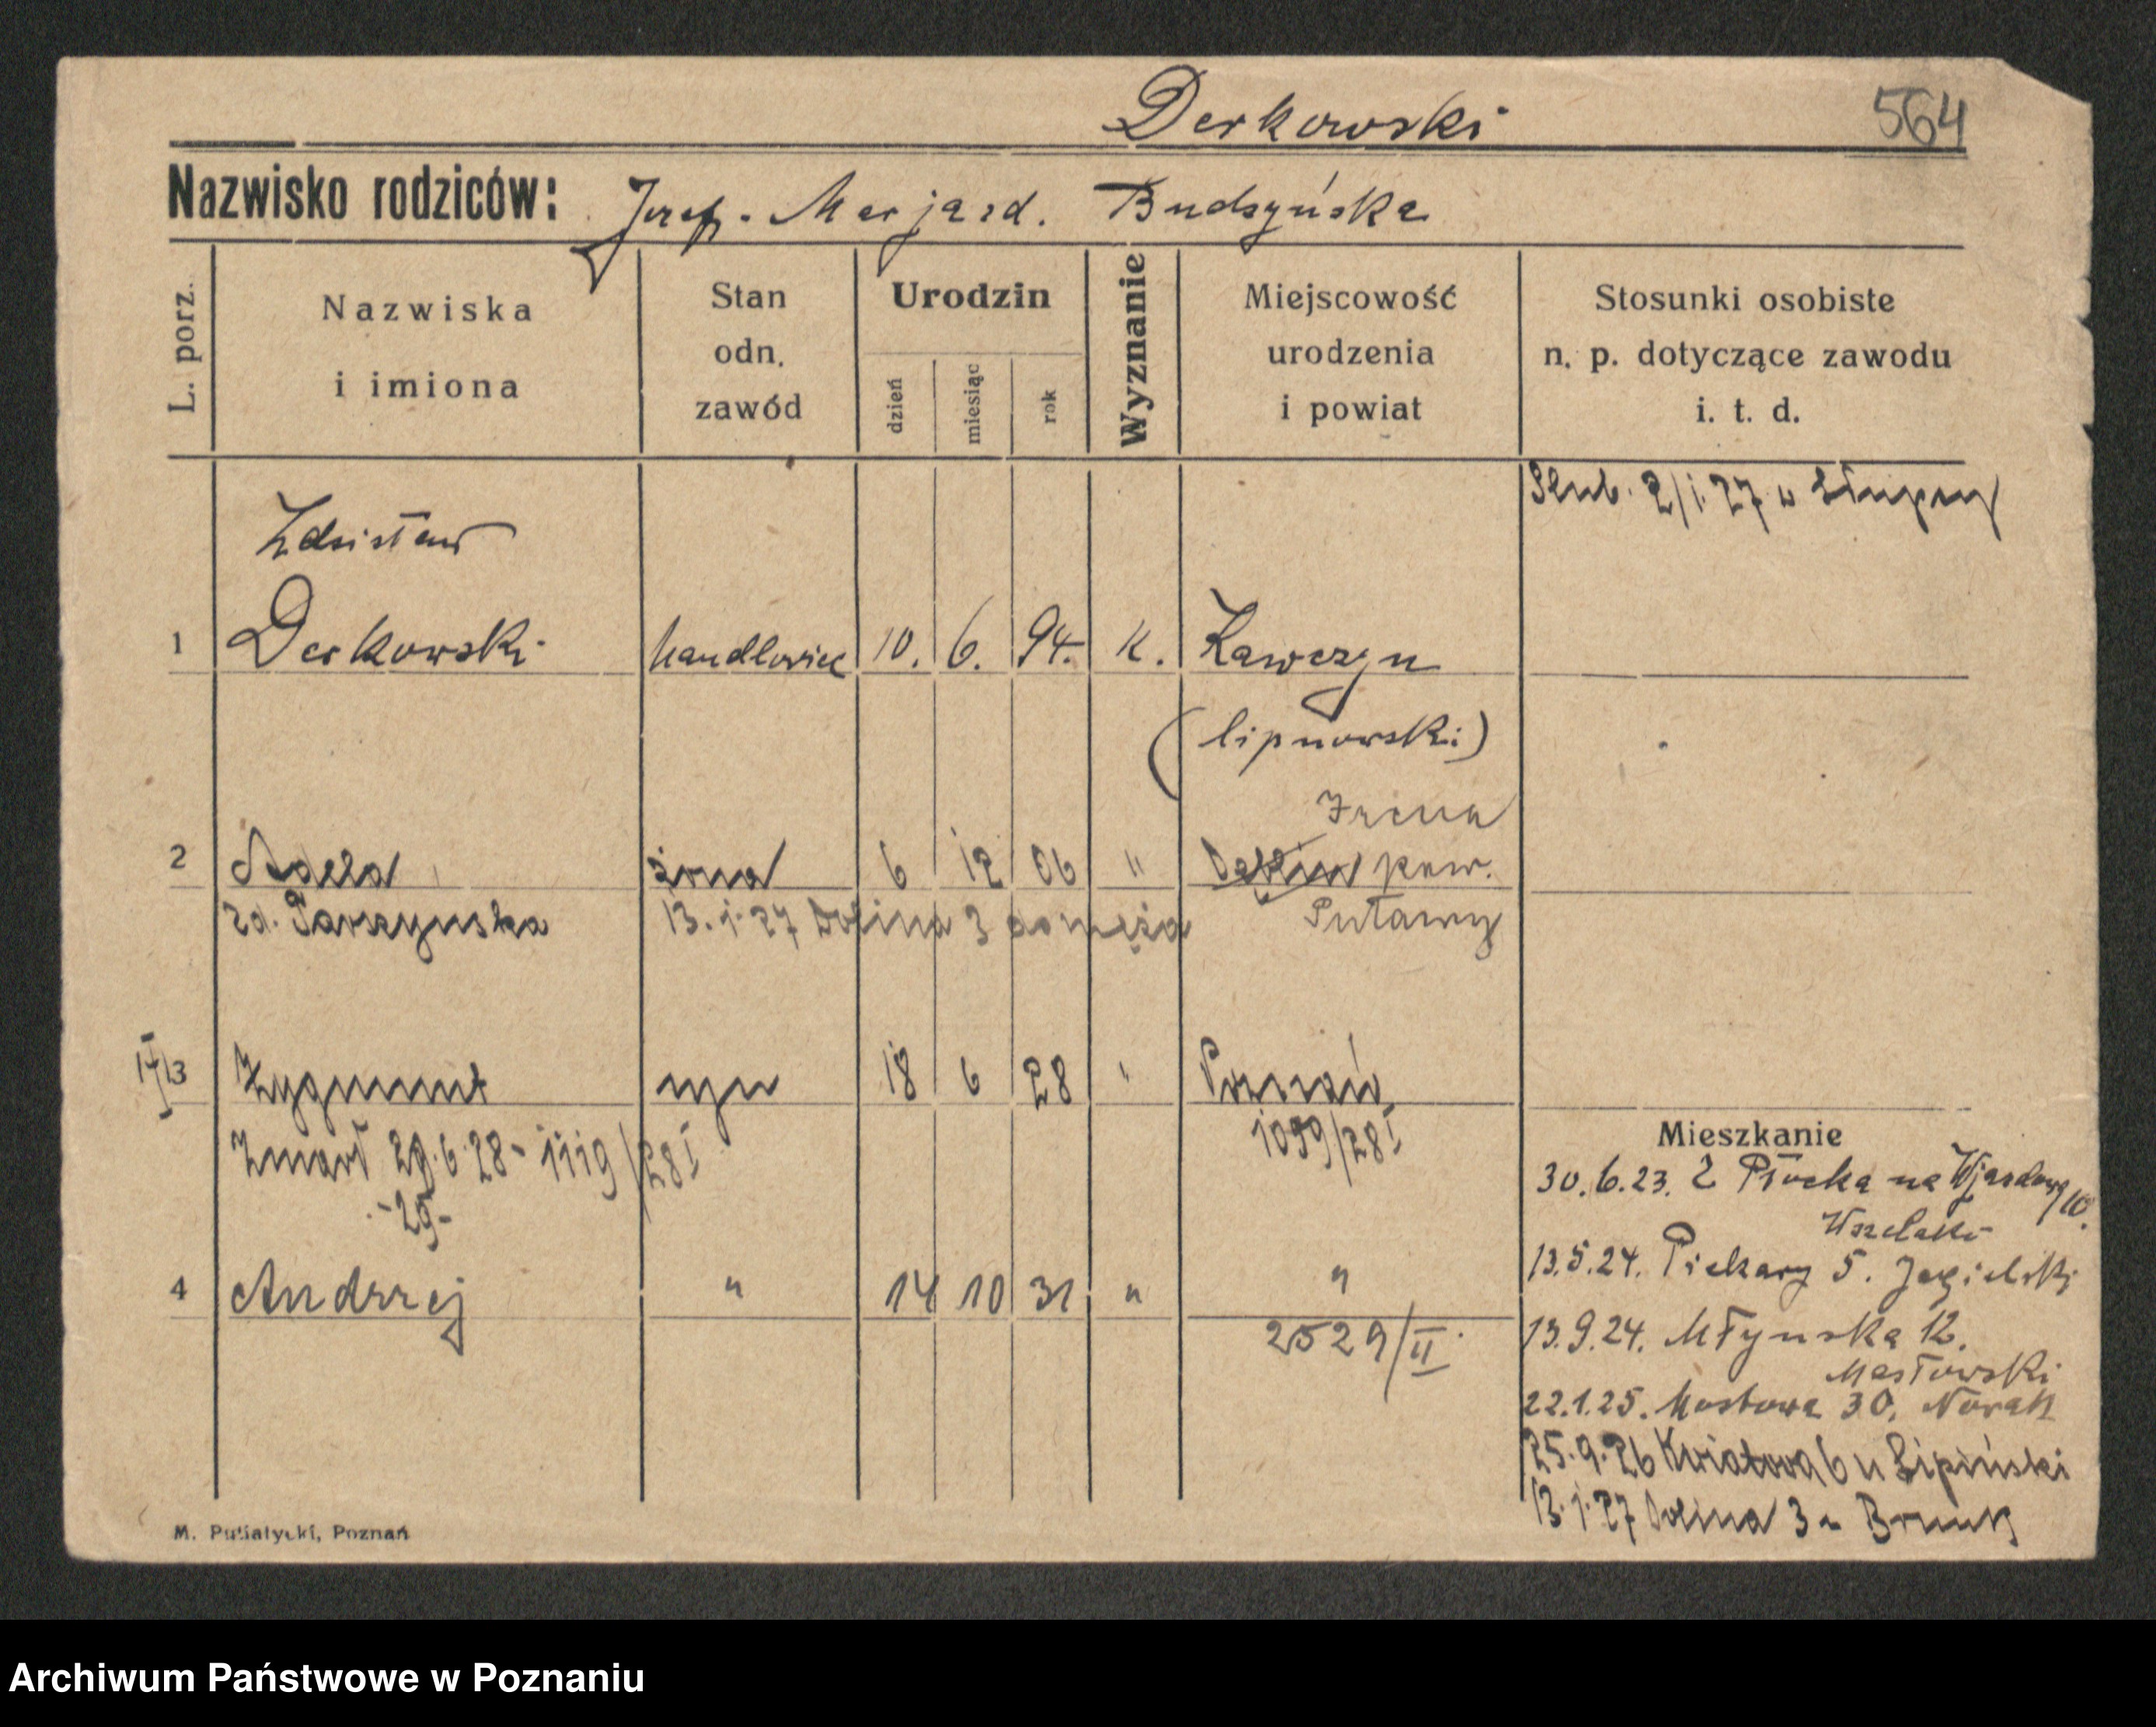 Derkowski 564
Nazwisko rodziców: Józef - Marja zd. Budzyńska
L. porz.
Nazwiska
i imiona
Stan
odn.
zawód
Urodzin
dzień
miesiąc
rok
Wyznanie
Miejscowość
urodzenia
i powiat
Stosunki osobiste
n. p. dotyczące zawodu
i. t. d.
Ślub. 2/1.27 w Słupcy
Zdzisław
1 Derkowski handlowiec 10. 6. 94. k. Kawczyn
(lipnowski)
Irena
2 Adela żona 6 12 06 " pow.
zd. Parszynska 13.1.27 Dolina 3 do męża Puławy
3 Zygmunt syn 18 6 28 " Poznań
Zmarł 29.6.28 - 1119/28 I 1099/28 I
-29-
4 Andrzej " 14 10 31 " "
2529/II
Mieszkanie
30.6.23. Z Płocka na Wjazdową 10.
13.5.24. Piekary 5. Jagielski
13.9.24. Młyńska 12.
Masłowski
22.1.25. Mostowa 30. Nowak
25.9.26 Kwiatowa 6 u Lipiński
13.1.27 Dolina 3 u
M. Putiatycki, Poznań
Archiwum Państwowe w Poznaniu